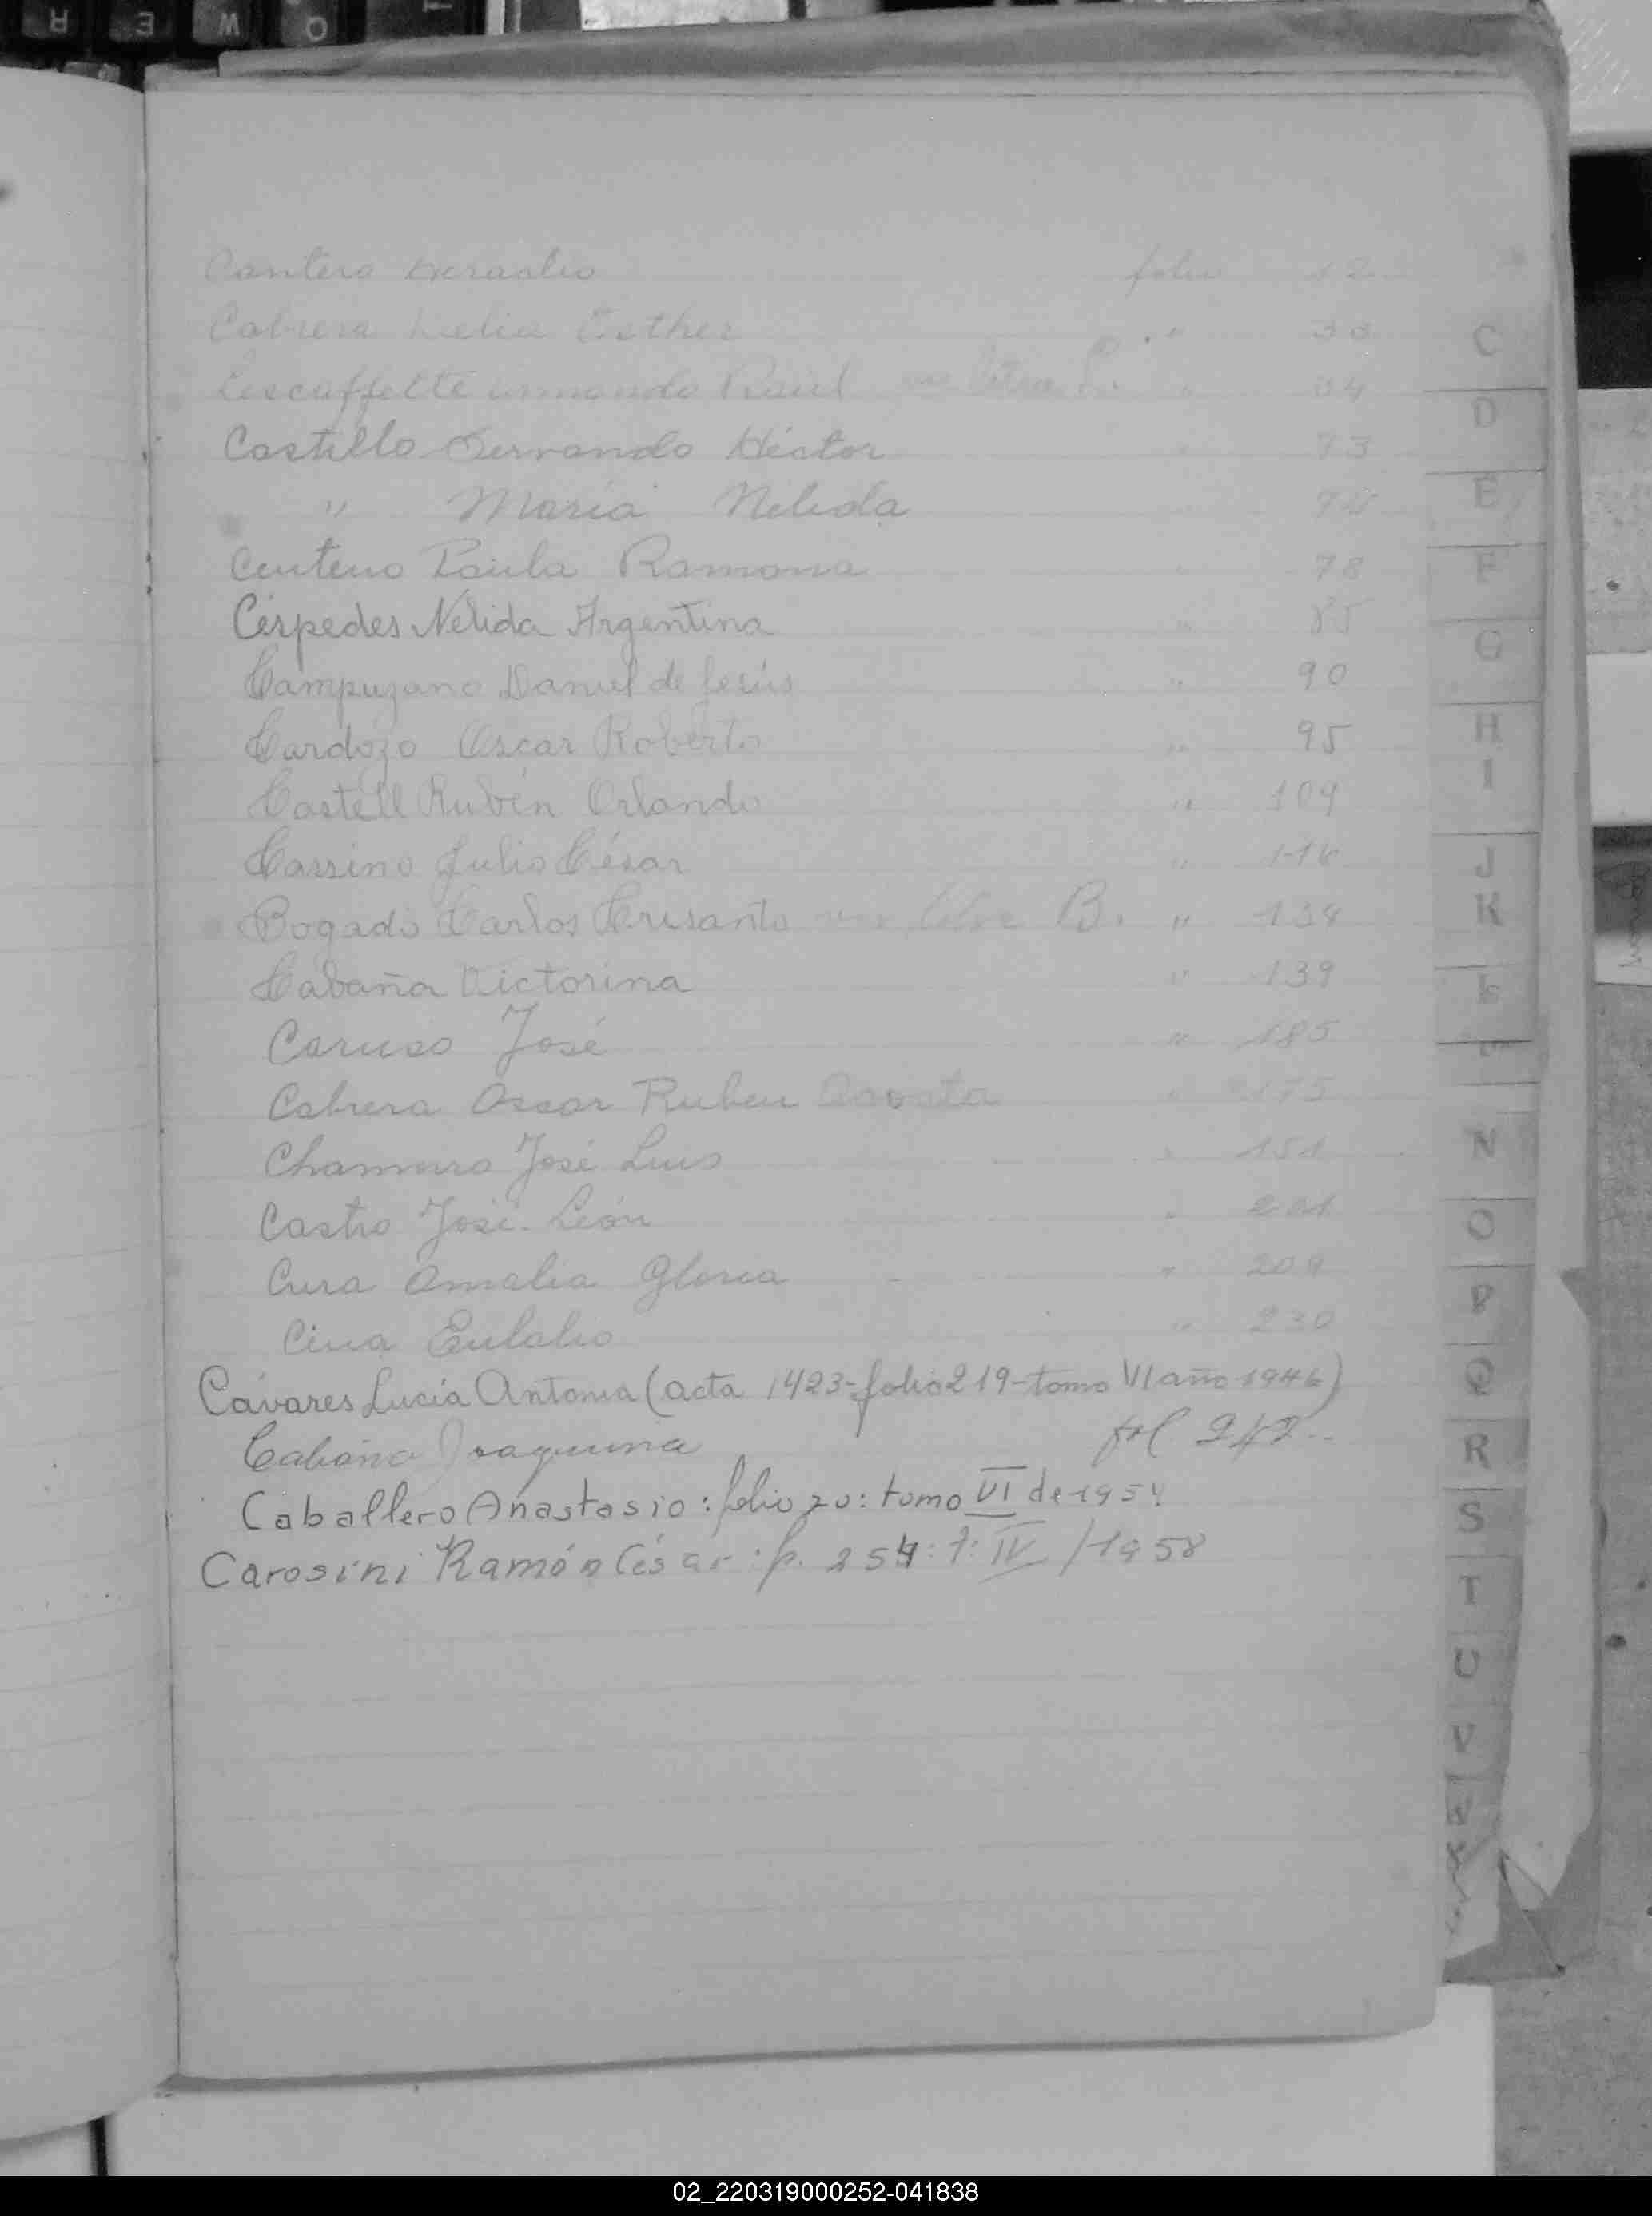 Cantero Heraclio folio 12
Cabrera Lelia Esther " 33
Lescaffette Armando Raúl ver letra L. " 54
Castillo Servando Héctor " 73
" María Nelida
Centeno Paula Ramona " 78
Céspedes Nélida Argentina " 85
Campuzano Daniel de Jesús " 90
Cardozo Oscar Roberto " 95
Castell Rubén Orlando " 109
Cassino Julio César " 116
Bogado Carlos Crisanto ver letra B. " 134
Cabaña Victorina " 139
Caruso José " 185
Cabrera Oscar Ruben Acosta " 175
Chamorro José Luis " 151
Castro José León " 201
Cura Amalia Gloria " 209
Cina Eulalio " 230
Cávares Lucía Antonia (acta 1423-folio 219-tomo VI año 1946)
Cabaña Joaquina fol 242
Caballero Anastasio: folio 20: tomo VI de 1954
Carosini Ramón César: f. 254: t: IV / 1958
C
D
E
F
G
H
I
J
K
L
N
O
P
Q
R
S
T
U
V
R E W Q
02_220319000252-041838